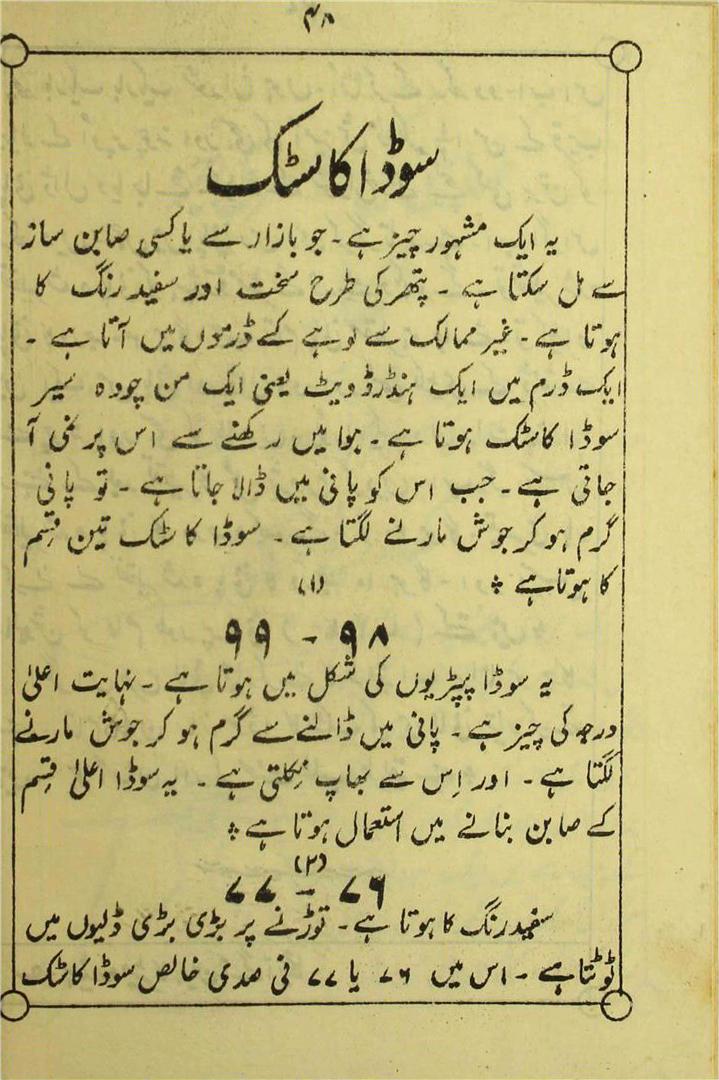 ۴۸
سوڈا کاسٹک
یہ ایک مشہور چیز ہے۔ جو بازار سے یا کسی صابن ساز
سے مل سکتا ہے ۔ پتھر کی طرح سخت اور سفید رنگ کا
ہوتا ہے۔ غیر ممالک سے لوہے کے ڈرموں میں آتا ہے ۔
ایک ڈرم میں ایک ہنڈرڈ ویٹ یعنی ایک من چودہ سیر
سوڈا کاسٹک ہوتا ہے۔ ہوا میں رکھنے سے اس پر نمی آ
جاتی ہے۔ جب اس کو پانی میں ڈالا جاتا ہے ۔ تو پانی
گرم ہو کر جوش مارنے لگتا ہے۔ سوڈا کاسٹک تین قسم
کا ہوتا ہے ⁘
(۱)
۹۸ - ۹۹
یہ سوڈا پپڑیوں کی شکل میں ہوتا ہے ۔ نہایت اعلیٰ
درجہ کی چیز ہے۔ پانی میں ڈالنے سے گرم ہو کر جوش مارنے
لگتا ہے۔ اور اِس سے بھاپ نکلتی ہے ۔ یہ سوڈا اعلیٰ قسم
کے صابن بنانے میں استعمال ہوتا ہے ⁘
(۲)
۷۶ - ۷۷
سفید رنگ کا ہوتا ہے۔ توڑنے پر بڑی بڑی ڈلیوں میں
ٹوٹتا ہے ۔ اس میں ۷۶ یا ۷۷ فی صدی خالص سوڈا کاسٹک